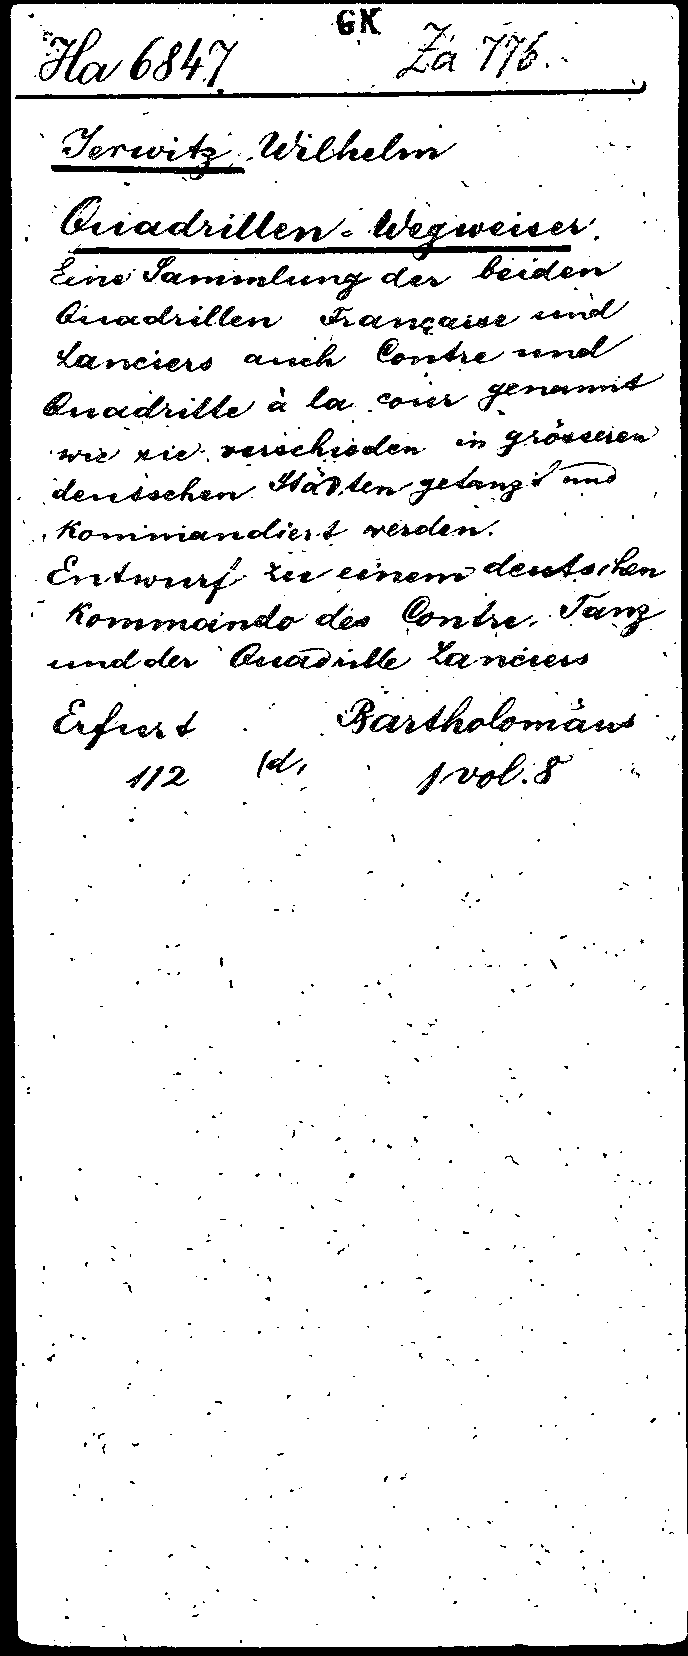 GK
Ha 6847. Za 776.
Jerwitz Wilhelm
Quadrillen-Wegweiser.
Eine Sammlung der beiden
Quadrillen Française und
Lanciers auch Contre und
Quadrille à la cour genannt
wie sie verschieden in grösseren
deutschen Städten getanzt und
kommandiert werden.
Entwurf zu einem deutschen
Kommando des Contre-Tanz
und der Quadrille Lanciers
Erfurt Bartholomäus
112 (d. 1 vol. 8